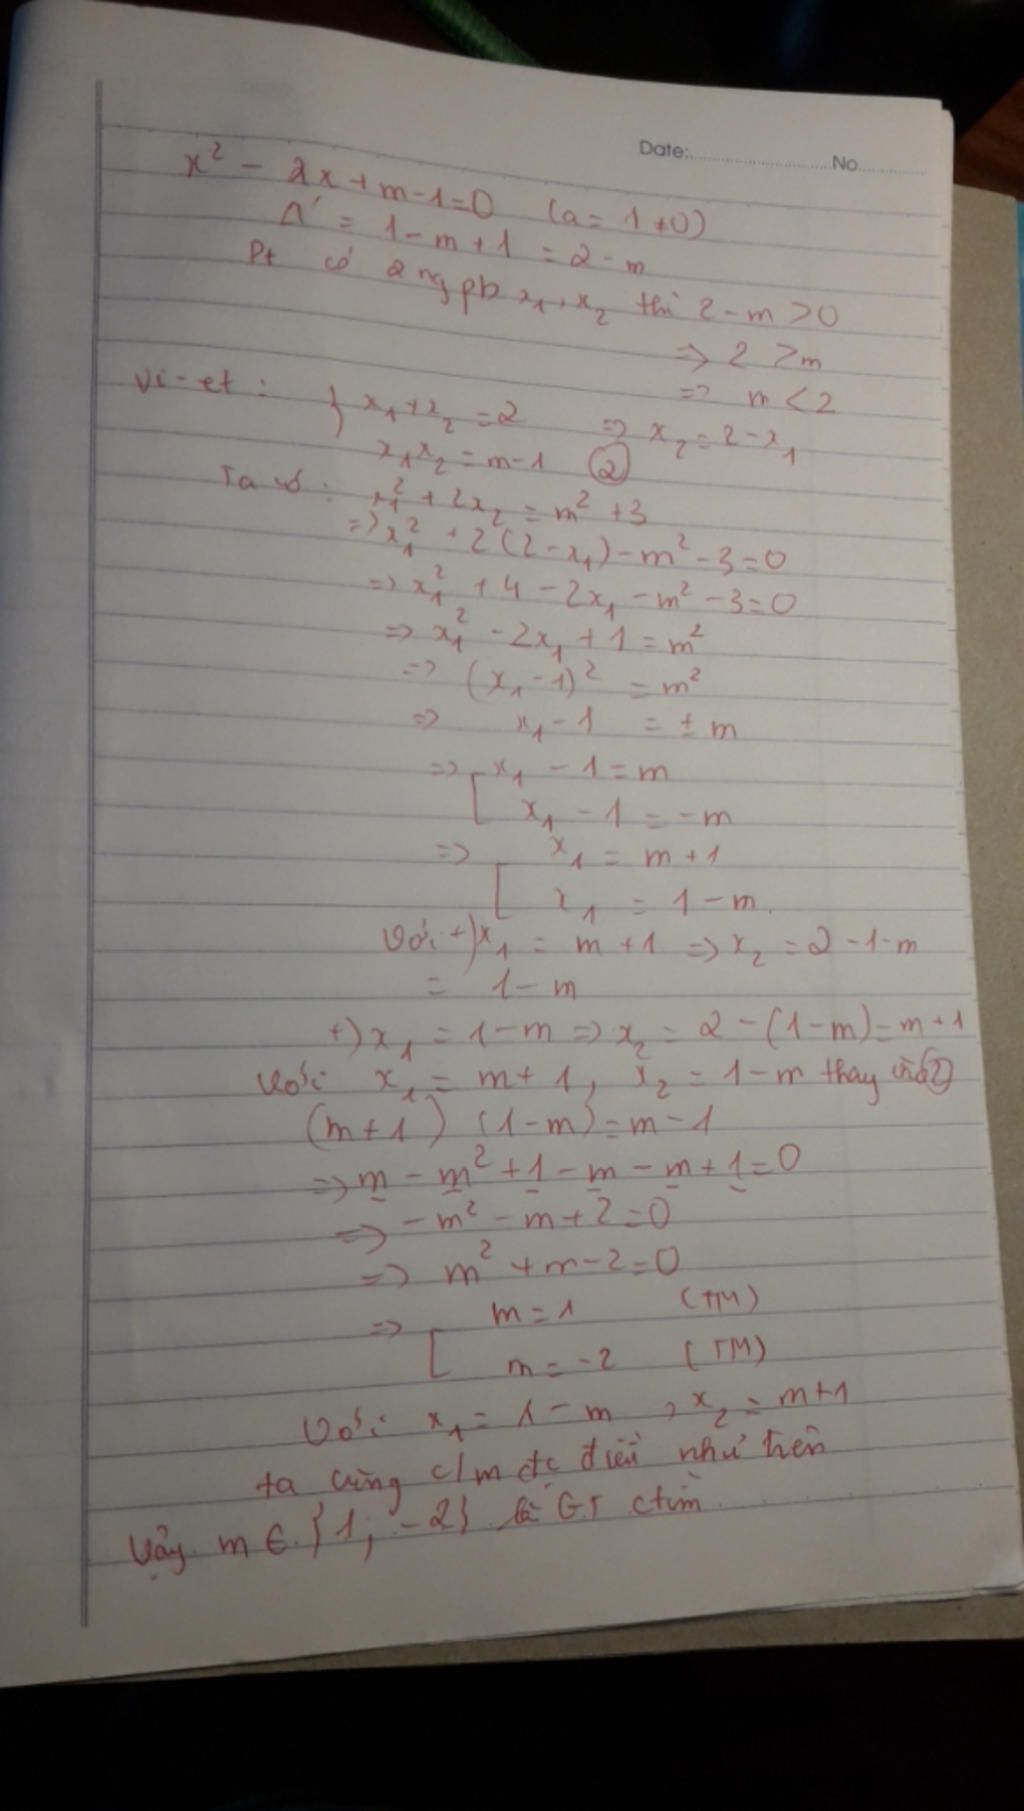 Date:..............................No..............
x² - 2x + m-1=0 (a = 1 ≠0)
Δ' = 1 - m + 1 = 2 - m
Pt có 2 ng pb x₁, x₂ thì 2 - m >0
=> 2 >m
=> m < 2
Vi-et : { x₁ + x₂ = 2 => x₂ = 2 - x₁
x₁x₂ = m-1 (2)
Ta có : x₁² + 2x₂ = m² + 3
=> x₁² + 2(2-x₁) - m² - 3 = 0
=> x₁² + 4 - 2x₁ - m² - 3 = 0
=> x₁² - 2x₁ + 1 = m²
=> (x₁ - 1)² = m²
=> x₁ - 1 = ± m
=> [ x₁ - 1 = m
x₁ - 1 = -m
=> [ x₁ = m + 1
x₁ = 1 - m.
Với +) x₁ = m + 1 => x₂ = 2 - 1 - m
= 1 - m
+) x₁ = 1 - m => x₂ = 2 - (1-m) = m + 1
Với x₁ = m + 1, x₂ = 1 - m thay vào (2)
(m + 1) (1 - m) = m - 1
=> m - m² + 1 - m - m + 1 = 0
=> - m² - m + 2 = 0
=> m² + m - 2 = 0
=> [ m = 1 (TM)
m = -2 (TM)
Với x₁ = 1 - m , x₂ = m + 1
ta cũng c/m đc điều như trên
Vậy m ∈ {1; -2} là GT ctìm.